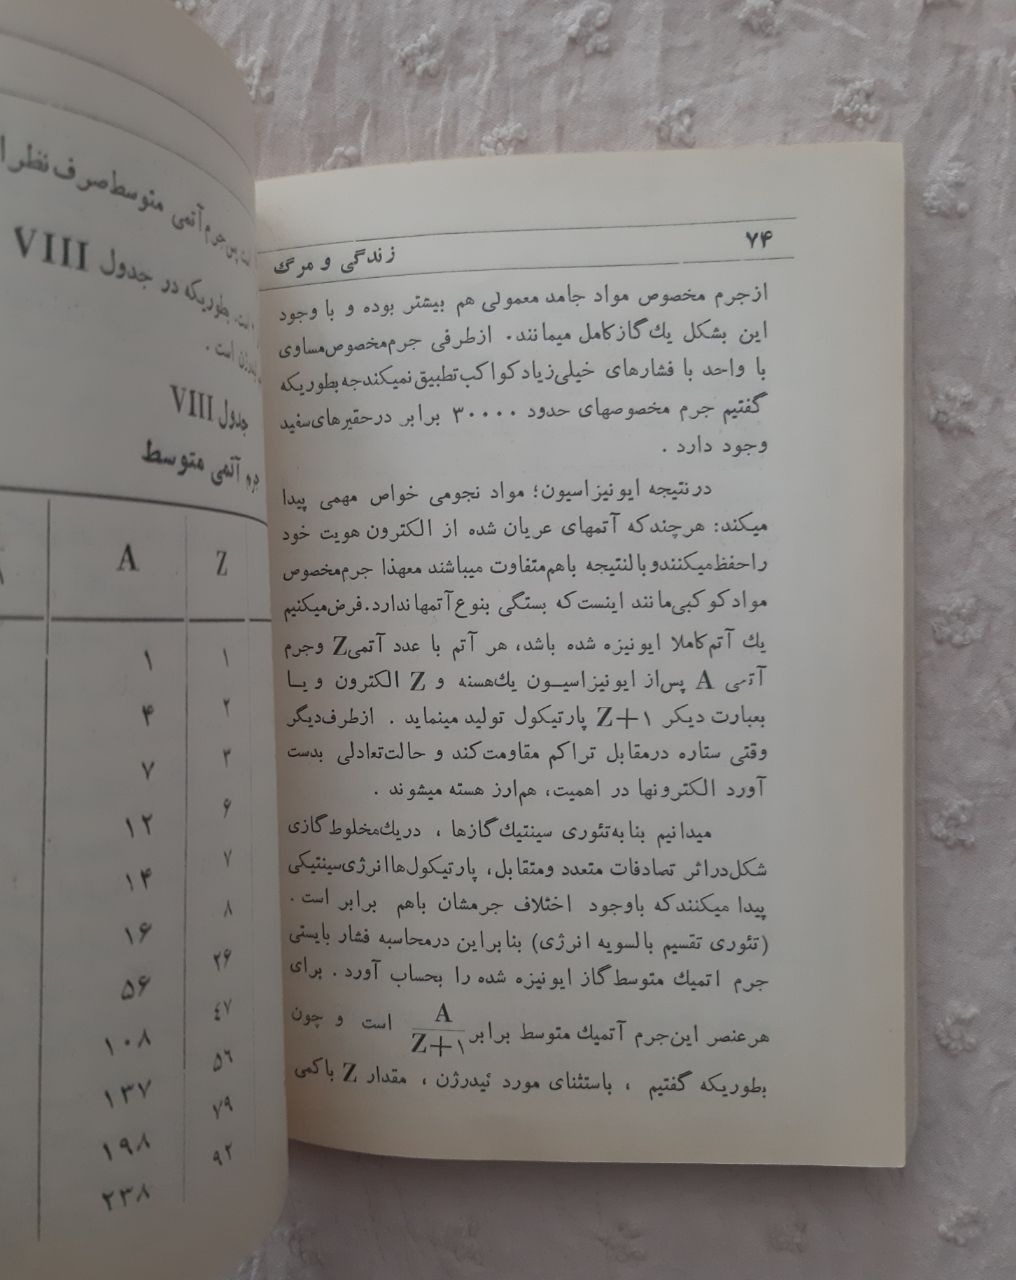 ۷۴
زندگی و مرگ
ازجرم مخصوص مواد جامد معمولی هم بیشتر بوده و با وجود
این بشکل یك گاز کامل میمانند. ازطرفی جرم‌مخصوص‌مساوی
با واحد با فشارهای خیلی‌زیاد کواکب تطبیق نمیکند چه بطوریکه
گفتیم جرم مخصوصهای حدود ۳۰۰۰۰ برابر درحقیرهای سفید
وجود دارد .
درنتیجه ایونیزاسیون؛ مواد نجومی خواص مهمی پیدا
میکند: هرچندکه آتمهای عریان شده از الکترون هویت خود
را حفظ میکنند و بالنتیجه باهم متفاوت میباشند معهذا جرم‌مخصوص
مواد کوکبی مانند اینست که بستگی بنوع آتمها ندارد. فرض میکنیم
یك آتم کاملا ایونیزه شده باشد، هر آتم با عدد آتمی Z وجرم
آتمی A پس از ایونیزاسیون یك هسته و Z الکترون و یا
بعبارت دیگر Z+۱ پارتیکول تولید مینماید . ازطرف دیگر
وقتی ستاره درمقابل تراکم مقاومت کند و حالت تعادلی بدست
آورد الکترونها در اهمیت، هم‌ارز هسته میشوند .
میدانیم بنا به تئوری سینتیك گازها ، دریك مخلوط گازی
شکل دراثر تصادفات متعدد ومتقابل، پارتیکول‌ها انرژی سینتیکی
پیدا میکنند که باوجود اختلاف جرمشان باهم برابر است .
(تئوری تقسیم بالسویه انرژی) بنابراین درمحاسبه فشار بایستی
جرم اتمیك متوسط گاز ایونیزه شده را بحساب آورد . برای
هر عنصر این جرم آتمیك متوسط برابر A/Z+۱ است و چون
بطوریکه گفتیم ، باستثنای مورد ئیدرژن ، مقدار Z باکمی
است پس جرم آتمی متوسط صرف نظر ا
است. بطوریکه در جدول VIII
است .
جدول VIII
جرم آتمی متوسط
Z A
۱ ۱
۲ ۴
۳ ۷
۶ ۱۲
۷ ۱۴
۸ ۱۶
۲۶ ۵۶
۴۷ ۱۰۸
۵۶ ۱۳۷
۷۹ ۱۹۸
۹۲ ۲۳۸